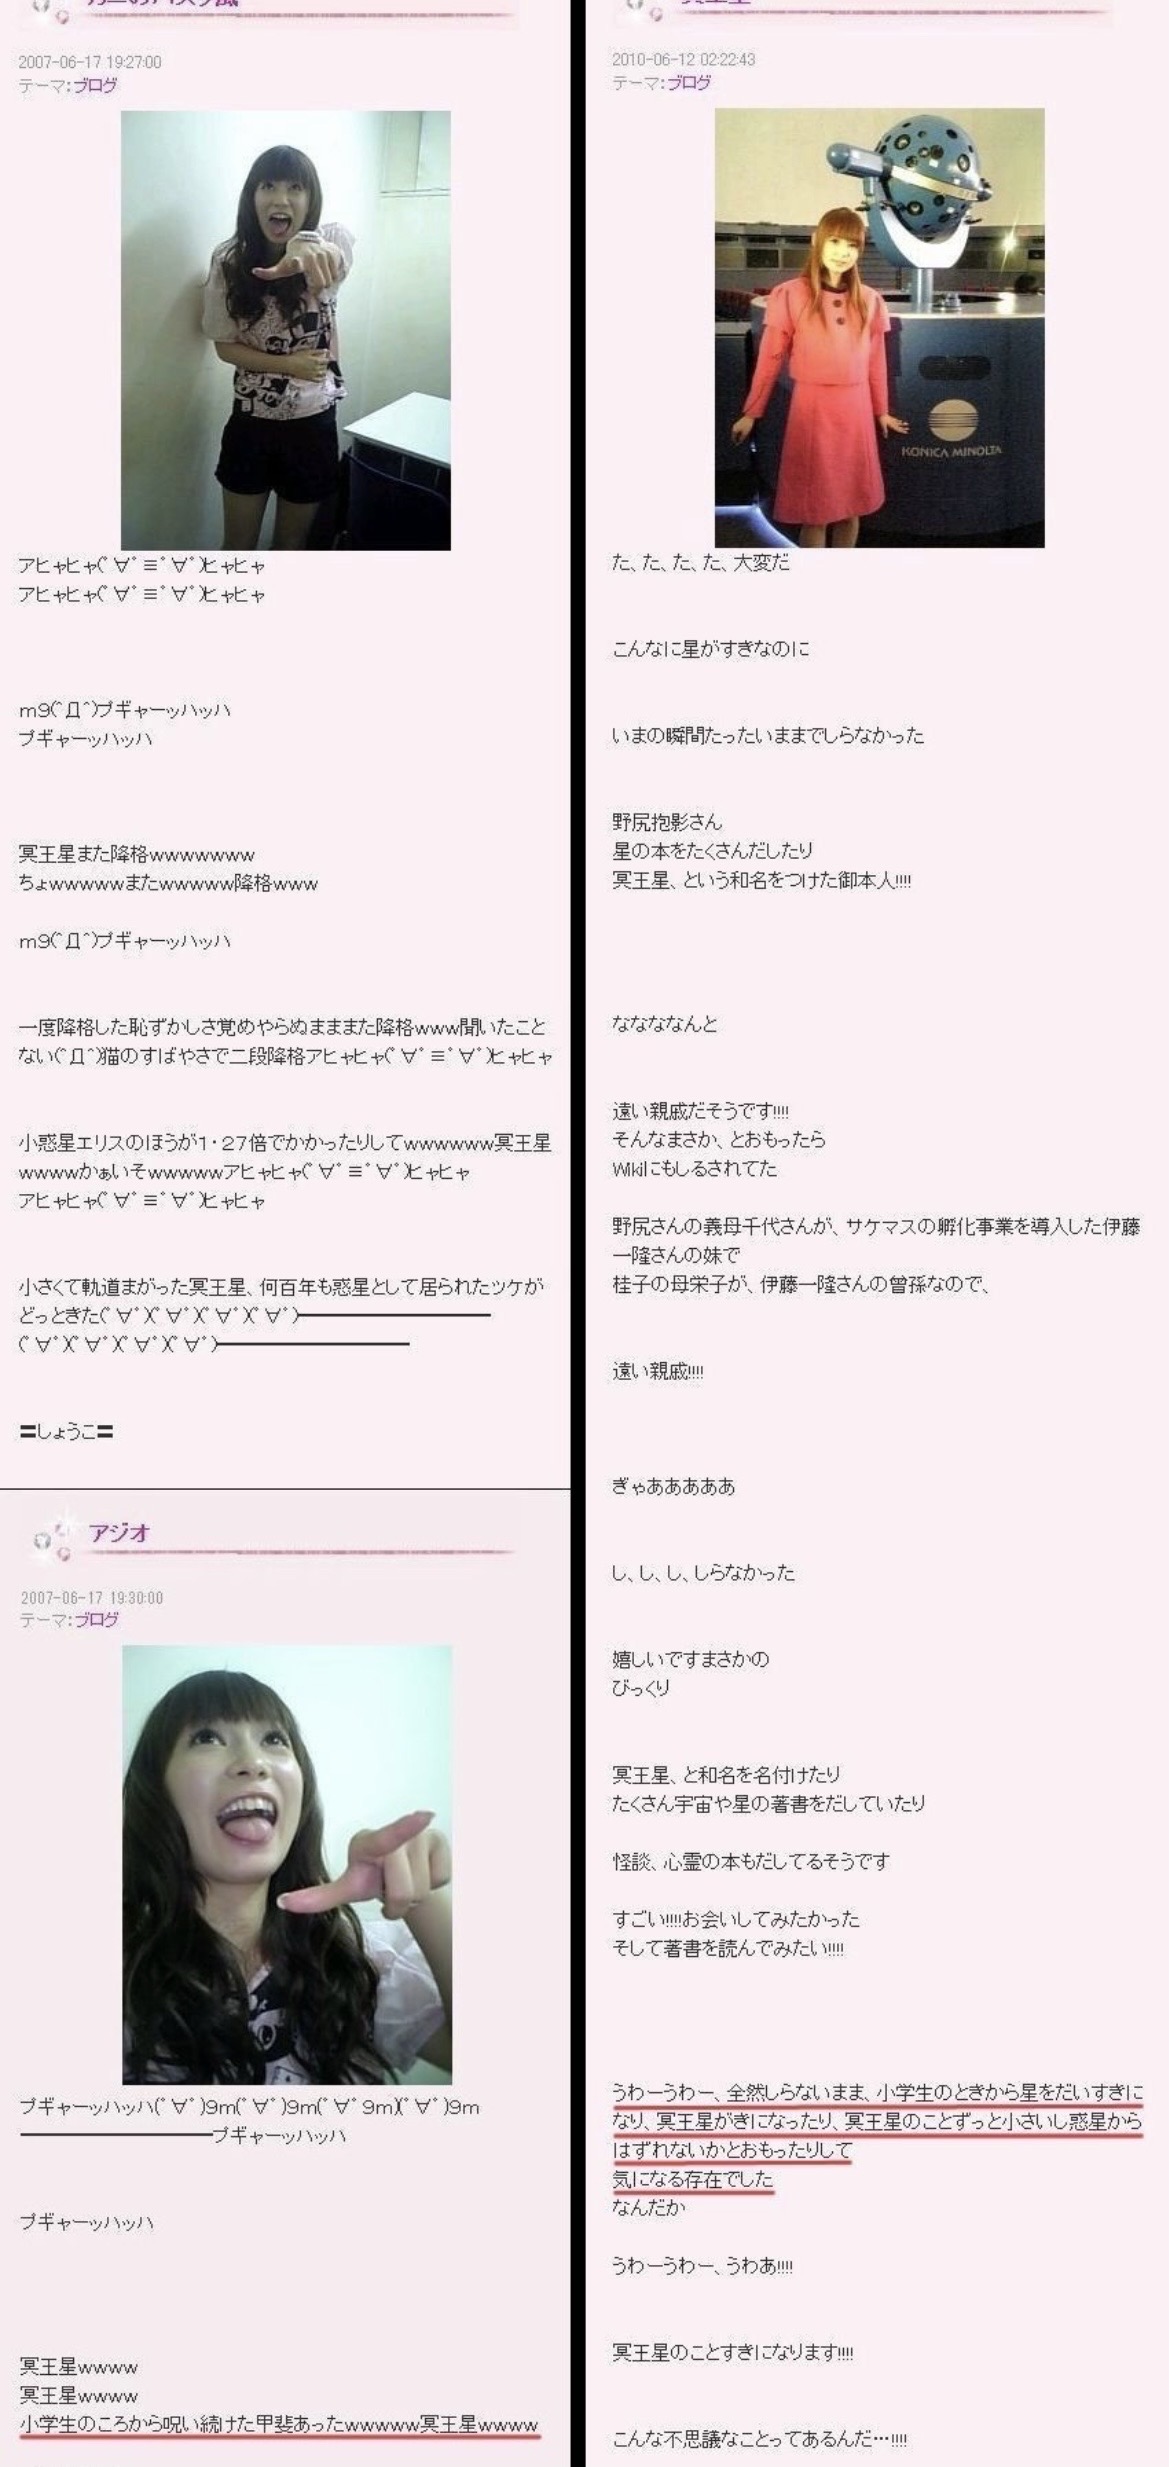 2007-06-17 19:27:00
テーマ:ブログ
アヒャヒャ(ﾟ∀ﾟ≡ﾟ∀ﾟ)ヒャヒャ
アヒャヒャ(ﾟ∀ﾟ≡ﾟ∀ﾟ)ヒャヒャ
m9(^Д^)プギャーッハッハ
プギャーッハッハ
冥王星また降格wwwwwww
ちょwwwwwまたwwwww降格www
m9(^Д^)プギャーッハッハ
一度降格した恥ずかしさ覚めやらぬまままた降格www聞いたこと
ない(^Д^)猫のすばやさで二段降格アヒャヒャ(ﾟ∀ﾟ≡ﾟ∀ﾟ)ヒャヒャ
小惑星エリスのほうが1・27倍でかかったりしてwwwwww冥王星
wwwwかぁいそwwwwwアヒャヒャ(ﾟ∀ﾟ≡ﾟ∀ﾟ)ヒャヒャ
アヒャヒャ(ﾟ∀ﾟ≡ﾟ∀ﾟ)ヒャヒャ
小さくて軌道まがった冥王星、何百年も惑星として居られたツケが
どっときた(ﾟ∀ﾟ)(ﾟ∀ﾟ)(ﾟ∀ﾟ)(ﾟ∀ﾟ)━━━━━━━━━━
(ﾟ∀ﾟ)(ﾟ∀ﾟ)(ﾟ∀ﾟ)(ﾟ∀ﾟ)━━━━━━━━━━
〓しょうこ〓
アジオ
2007-06-17 19:30:00
テーマ:ブログ
プギャーッハッハ(ﾟ∀ﾟ)9m(ﾟ∀ﾟ)9m(ﾟ∀ﾟ9m)(ﾟ∀ﾟ)9m
━━━━━━━━━━プギャーッハッハ
プギャーッハッハ
冥王星wwww
冥王星wwww
小学生のころから呪い続けた甲斐あったwwwww冥王星wwww
2010-06-12 02:22:43
テーマ:ブログ
KONICA MINOLTA
た、た、た、た、大変だ
こんなに星がすきなのに
いまの瞬間たったいままでしらなかった
野尻抱影さん
星の本をたくさんだしたり
冥王星、という和名をつけた御本人!!!!
なななななんと
遠い親戚だそうです!!!!
そんなまさか、とおもったら
Wikiにもしるされてた
野尻さんの義母千代さんが、サケマスの孵化事業を導入した伊藤
一隆さんの妹で
桂子の母栄子が、伊藤一隆さんの曾孫なので、
遠い親戚!!!!
ぎゃああああああ
し、し、し、しらなかった
嬉しいですまさかの
びっくり
冥王星、と和名を名付けたり
たくさん宇宙や星の著書をだしていたり
怪談、心霊の本もだしてるそうです
すごい!!!!お会いしてみたかった
そして著書を読んでみたい!!!!
うわーうわー、全然しらないまま、小学生のときから星をだいすきに
なり、冥王星がきになったり、冥王星のことずっと小さいし惑星から
はずれないかとおもったりして
気になる存在でした
なんだか
うわーうわー、うわあ!!!!
冥王星のことすきになります!!!!
こんな不思議なことってあるんだ…!!!!